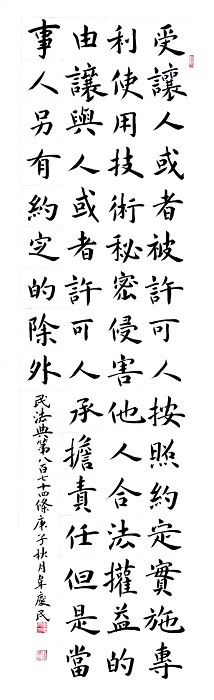 受讓人或者被許可人按照約定實施專
利使用技術秘密侵害他人合法權益的
由讓與人或者許可人承擔責任但是當
事人另有約定的除外
民法典第八百七十四條庚子秋月牟慶民